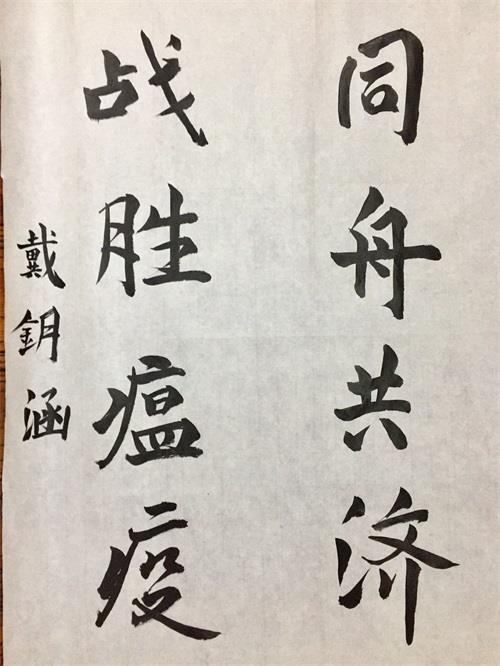 同舟共济
战胜瘟疫
戴钥涵